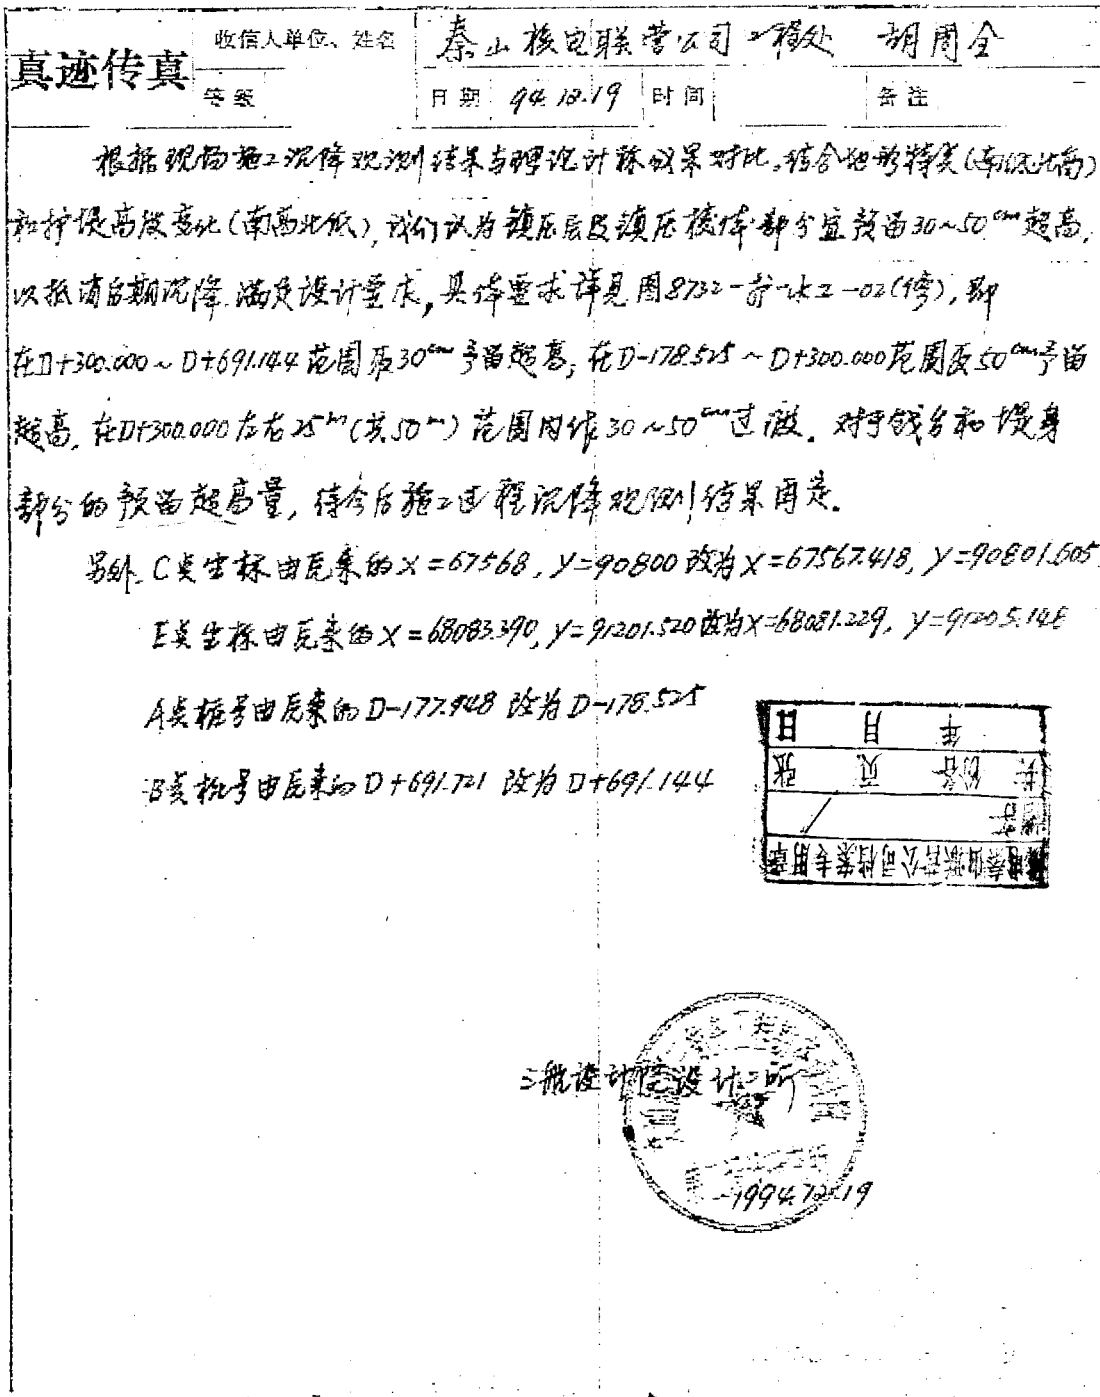 真迹传真
收信人单位、姓名 秦山核电联营公司工程处 胡周全
等级 日期 94.12.19 时间 备注
根据现场施工沉降观测结果与理论计算成果对比,结合地形特点(南低北高)
和护堤高度变化(南高北低),我们认为镇压层及镇压棱体部分宜预留30~50cm超高,
以抵消后期沉降 满足设计要求,具体要求详见图8732-初-水工-02(修),即
在D+300.000~D+691.144范围取30cm予留超高,在D-178.525~D+300.000范围取50cm予留
超高,在D+300.000左右25m(共50m)范围内作30~50cm过渡. 对于戗台和堤身
部分的预留超高量,待今后施工过程沉降观测结果再定.
另外,C点坐标由原来的X=67568,Y=90800改为X=67567.418,Y=90801.605
E点坐标由原来的X=68083.390,Y=91201.520改为X=68081.229,Y=91205.148
A点桩号由原来的D-177.948改为D-178.525
B点桩号由原来的D+691.721改为D+691.144
年 月 日
共 份 页 张
秦山联营公司档案专用章
三航设计院设计二所
1994.12.19